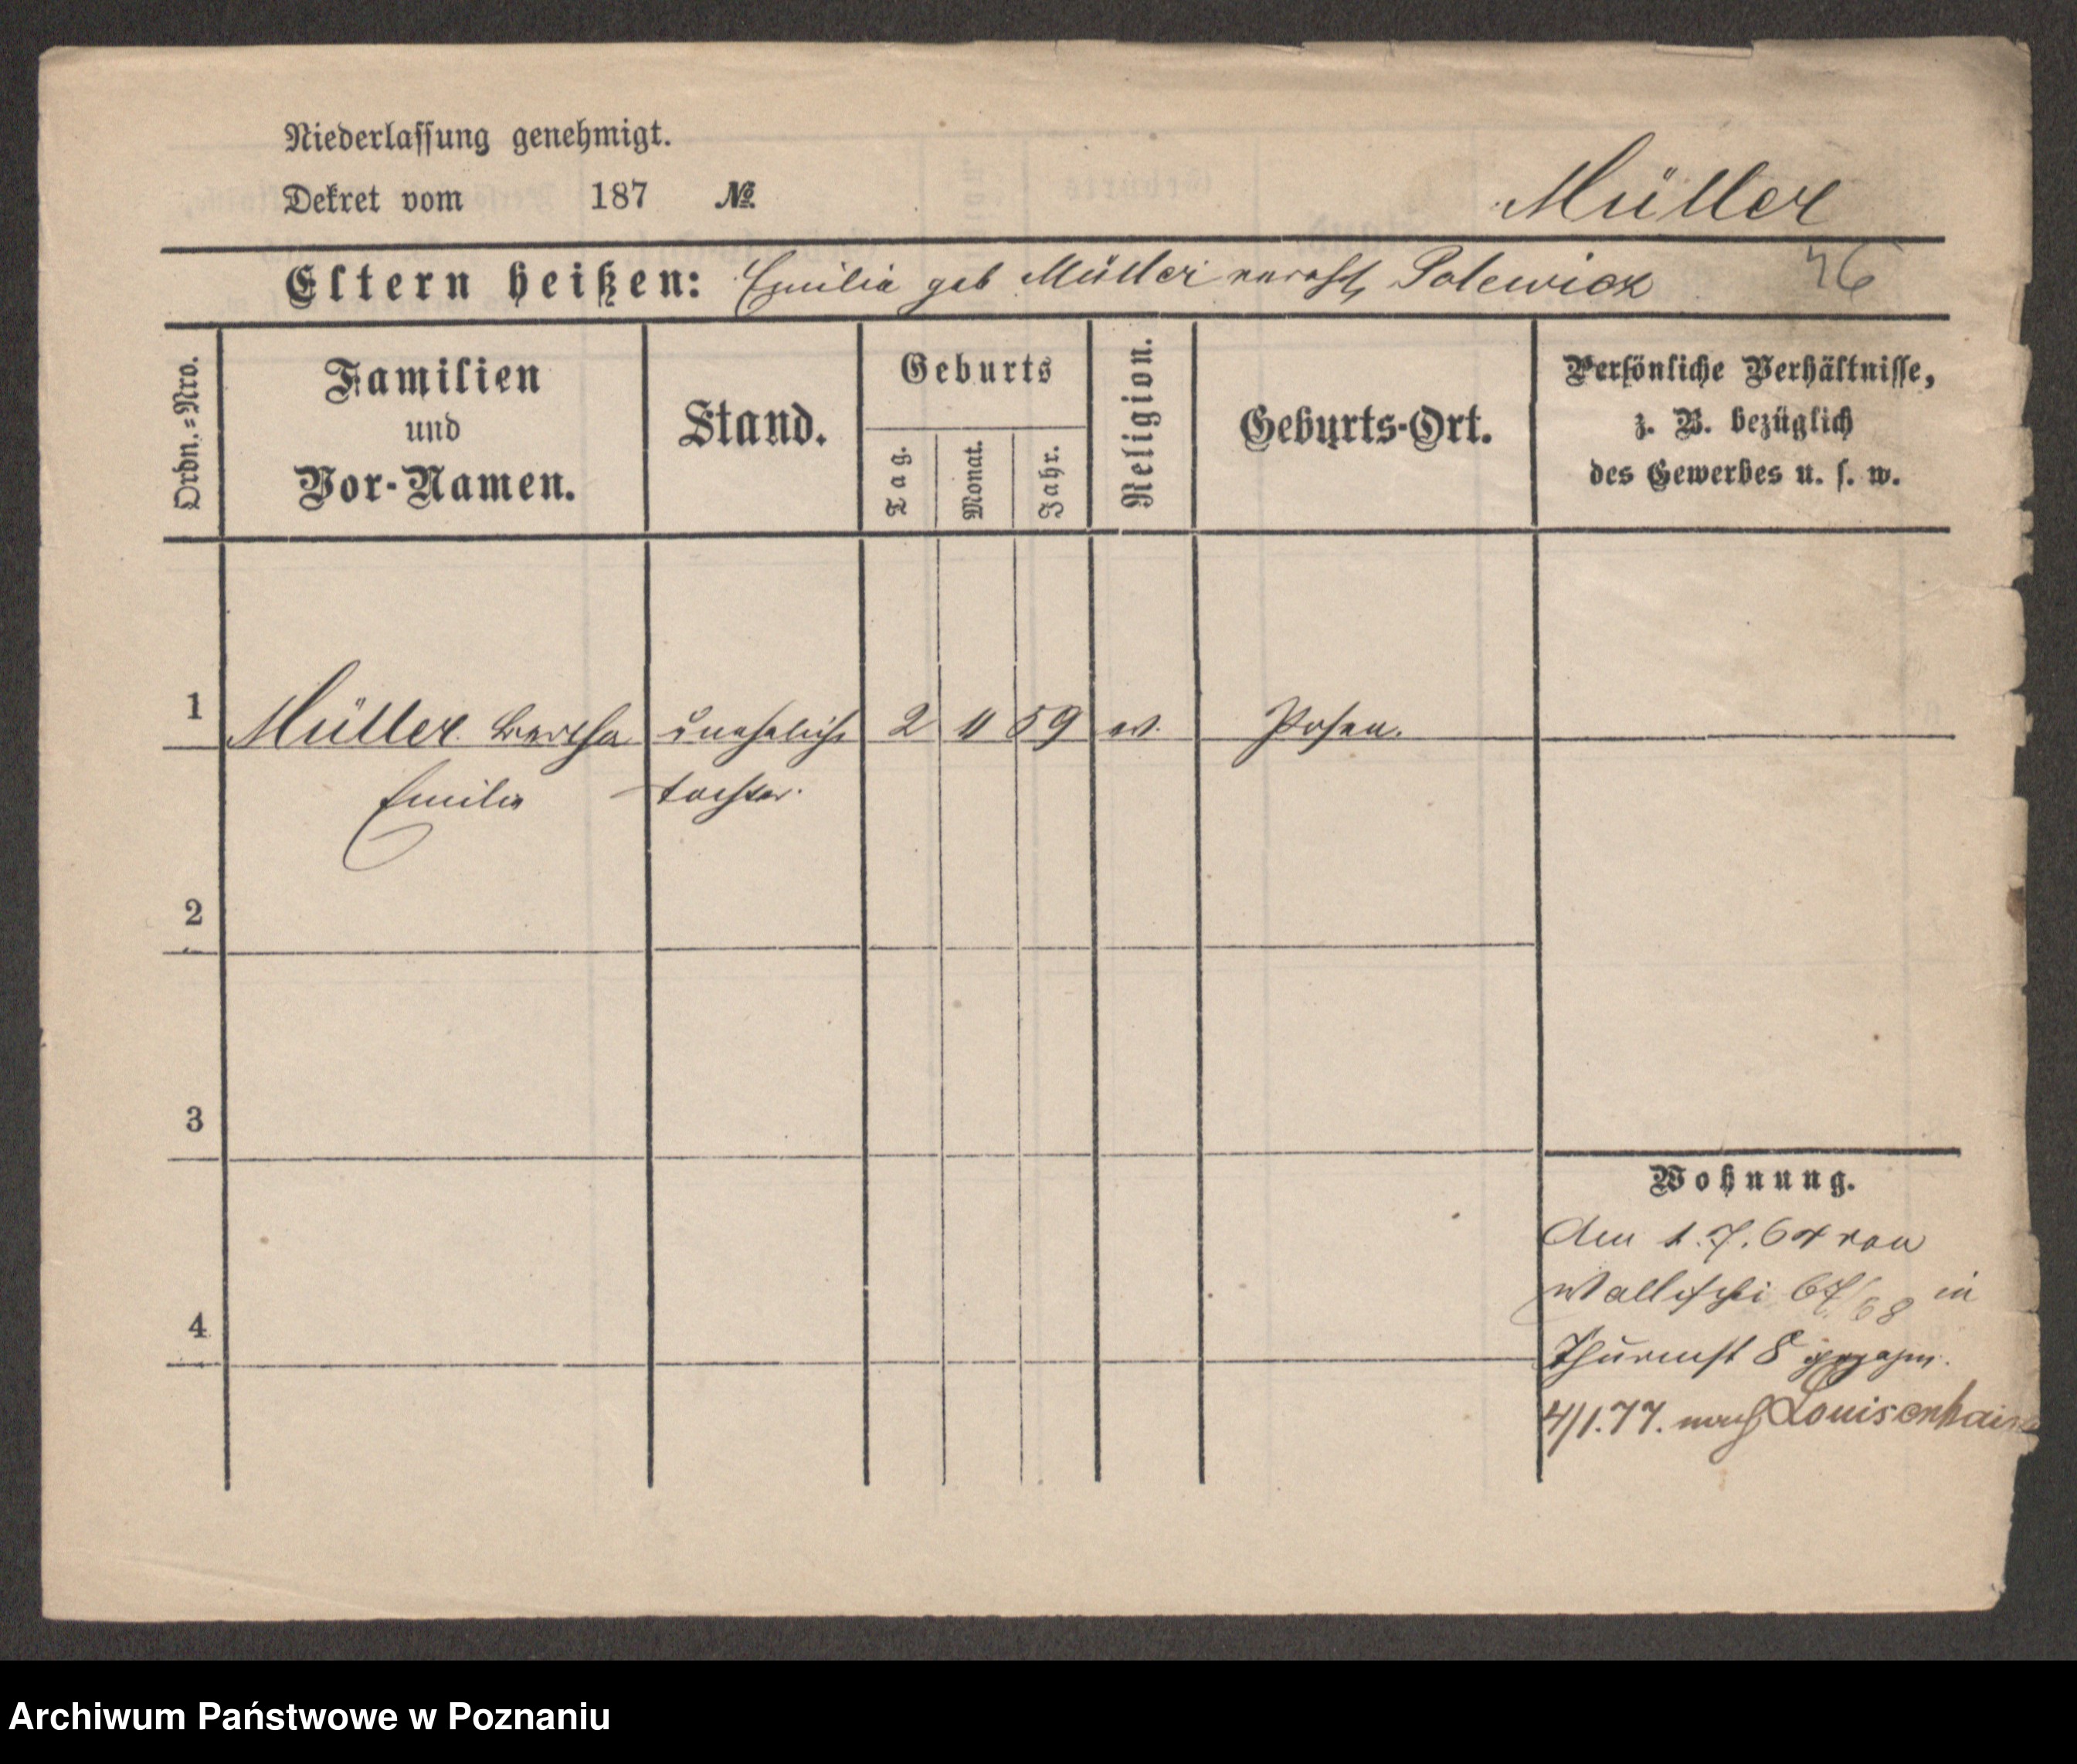 Niederlassung genehmigt.
Dekret vom 187 №
Müller
Eltern heißen: Emilia geb Müller verehl. Polewicz
76
Ordn.=Nro.
Familien
und
Vor-Namen.
Stand.
Geburts
Tag.
Monat.
Jahr.
Religion.
Geburts-Ort.
Persönliche Verhältnisse,
z. B. bezüglich
des Gewerbes u. s. w.
1 Müller Bertha uneheliche 2 11 59 ev. Posen.
Emilie tochter.
2
3
4
Wohnung.
Am 1.7.64 von
Wallischei 67/68 in
Thurmst 8 gezogen.
4/1.77. nach Louisenhain
Archiwum Państwowe w Poznaniu